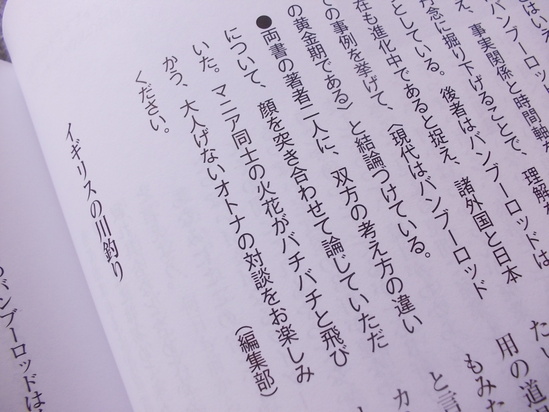 はいえ、
バンブーロッドは
え、事実関係と時間軸
念に掘り下げることで、理解
としている。後者はバンブーロッドは
在も進化中であると捉え、諸外国と日本
の事例を挙げて、〈現代はバンブーロッド
の黄金期である〉と結論づけている。
●両書の著者二人に、双方の考え方の違い
について、顔を突き合わせて論じていただ
いた。マニア同士の火花がバチバチと飛び
かう、大人げないオトナの対談をお楽しみ
ください。
(編集部)
イギリスの川釣り
たい
用の道
もみた
と言
カ
バンブーロッドは